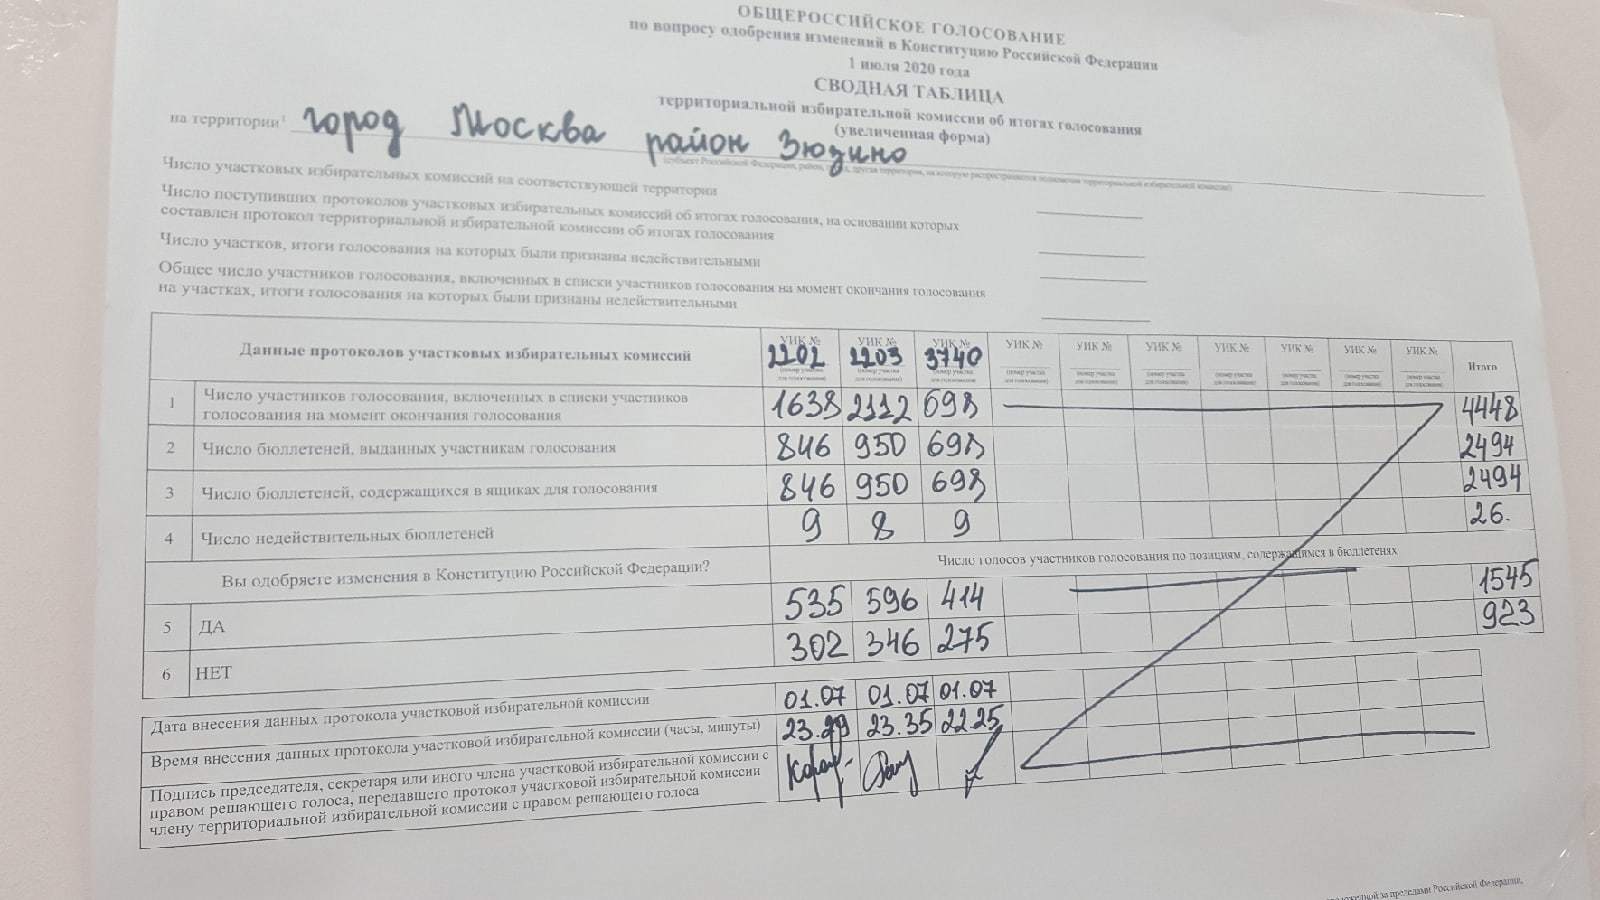 ОБЩЕРОССИЙСКОЕ ГОЛОСОВАНИЕ
по вопросу одобрения изменений в Конституцию Российской Федерации
1 июля 2020 года
СВОДНАЯ ТАБЛИЦА
территориальной избирательной комиссии об итогах голосования
(увеличенная форма)
на территории¹ город Москва район Зюзино
Число участковых избирательных комиссий на соответствующей территории
Число поступивших протоколов участковых избирательных комиссий об итогах голосования, на основании которых
составлен протокол территориальной избирательной комиссии об итогах голосования
Число участков, итоги голосования на которых были признаны недействительными
Общее число участников голосования, включенных в списки участников голосования на момент окончания голосования
на участках, итоги голосования на которых были признаны недействительными
Данные протоколов участковых избирательных комиссий УИК № 2202 УИК № 2203 УИК № 3740 УИК № УИК № УИК № УИК № УИК № УИК № УИК № Итого
(номер участка (номер участка (номер участка (номер участка (номер участка (номер участка (номер участка (номер участка (номер участка (номер участка
для голосования) для голосования) для голосования) для голосования) для голосования) для голосования) для голосования) для голосования) для голосования) для голосования)
1 Число участников голосования, включенных в списки участников
голосования на момент окончания голосования 1638 2112 698 4448
2 Число бюллетеней, выданных участникам голосования 846 950 698 2494
3 Число бюллетеней, содержащихся в ящиках для голосования 846 950 698 2494
4 Число недействительных бюллетеней 9 8 9 26.
Вы одобряете изменения в Конституцию Российской Федерации? Число голосов участников голосования по позициям, содержащимся в бюллетенях
5 ДА 535 596 414 1545
6 НЕТ 302 346 275 923
Дата внесения данных протокола участковой избирательной комиссии 01.07 01.07 01.07
Время внесения данных протокола участковой избирательной комиссии (часы, минуты) 23.29 23.35 22.25
Подпись председателя, секретаря или иного члена участковой избирательной комиссии с
правом решающего голоса, передавшего протокол участковой избирательной комиссии
члену территориальной избирательной комиссии с правом решающего голоса
за пределами Российской Федерации,